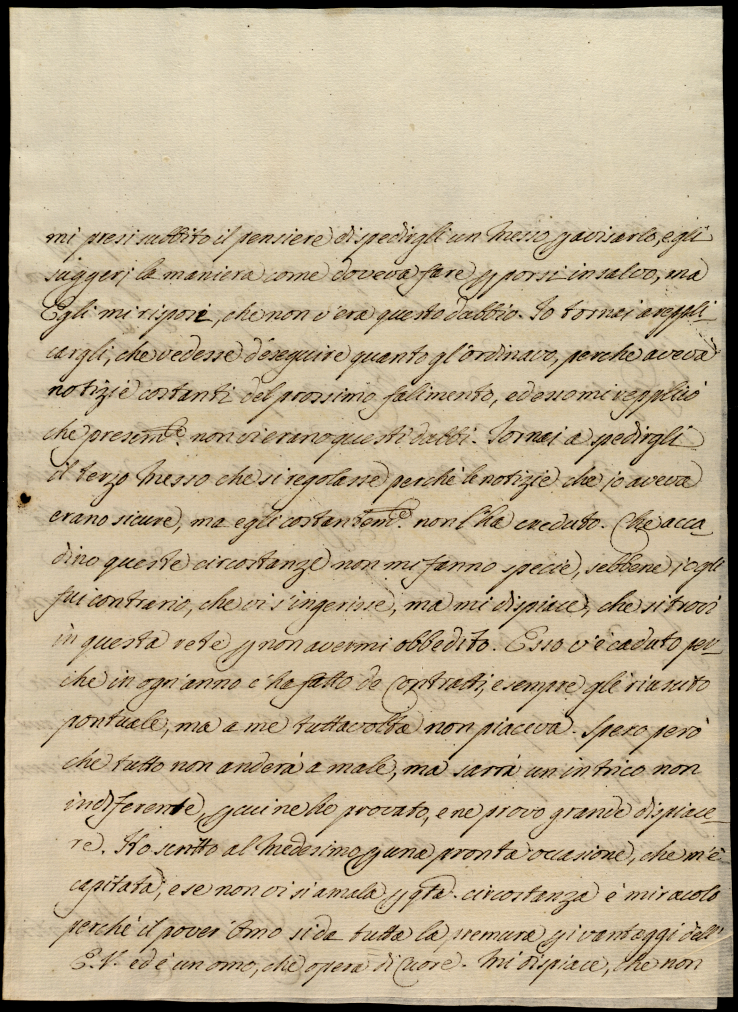 mi presi subbito il pensiere di spedirgli un Messo p avisarlo, e gli
suggerj la maniera come doveva fare p porsi in salvo, ma
Egli mi rispose, che non v'era questo dabbio. Io tornai a reppli
cargli, che vedesse d'eseguire quanto gl'ordinavo, perche aveva
notizie costanti del prossimo falimento, ed esso mi repplicò
che presentem.e non vi erano questi dabbi. Tornai a spedirgli
il terzo Messo che si regolasse perchè le notizie che jo aveva
erano sicure, ma egli costantem.e non l'ha creduto. Che acca
dino queste circostanze non mi fanno specie, sebbene jo gli
fui contrario, che vi s'ingerisse, ma mi dispiace, che si trovi
in questa rete p non avermi obbedito. Esso v'è caduto per
che in ogn'anno c'ha fatto de Contratti, e sempre gl'è riuscito
pontuale, ma a me tuttavolta non piaceva. Spero però
che tutto non anderà a male, ma sarrà un intrico non
indiferente, p cui ne ho provato, e ne provo grande dispiace
re. Ho scritto al Medesimo p una pronta occasione, che m'è
capitata, e se non vi si amala p q.ta circostanza è miracolo
perchè il pover'Omo si da tutta la premura p i vantaggi dell'
E.V. ed è un omo, che opera di Cuore. Mi dispiace, che non